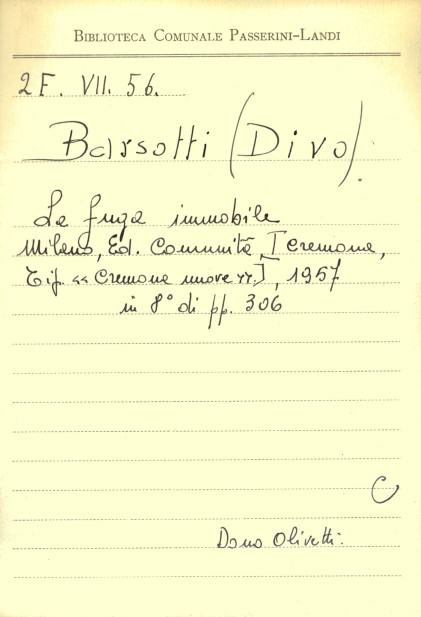 BIBLIOTECA COMUNALE PASSERINI-LANDI
2F. VII. 56.
Barsotti (Divo).
La fuga immobile
Milano, Ed. Comunità, [Cremona,
Tif. «Cremona nuova».], 1957
in 8° di pp. 306
C
Dono Olivetti.